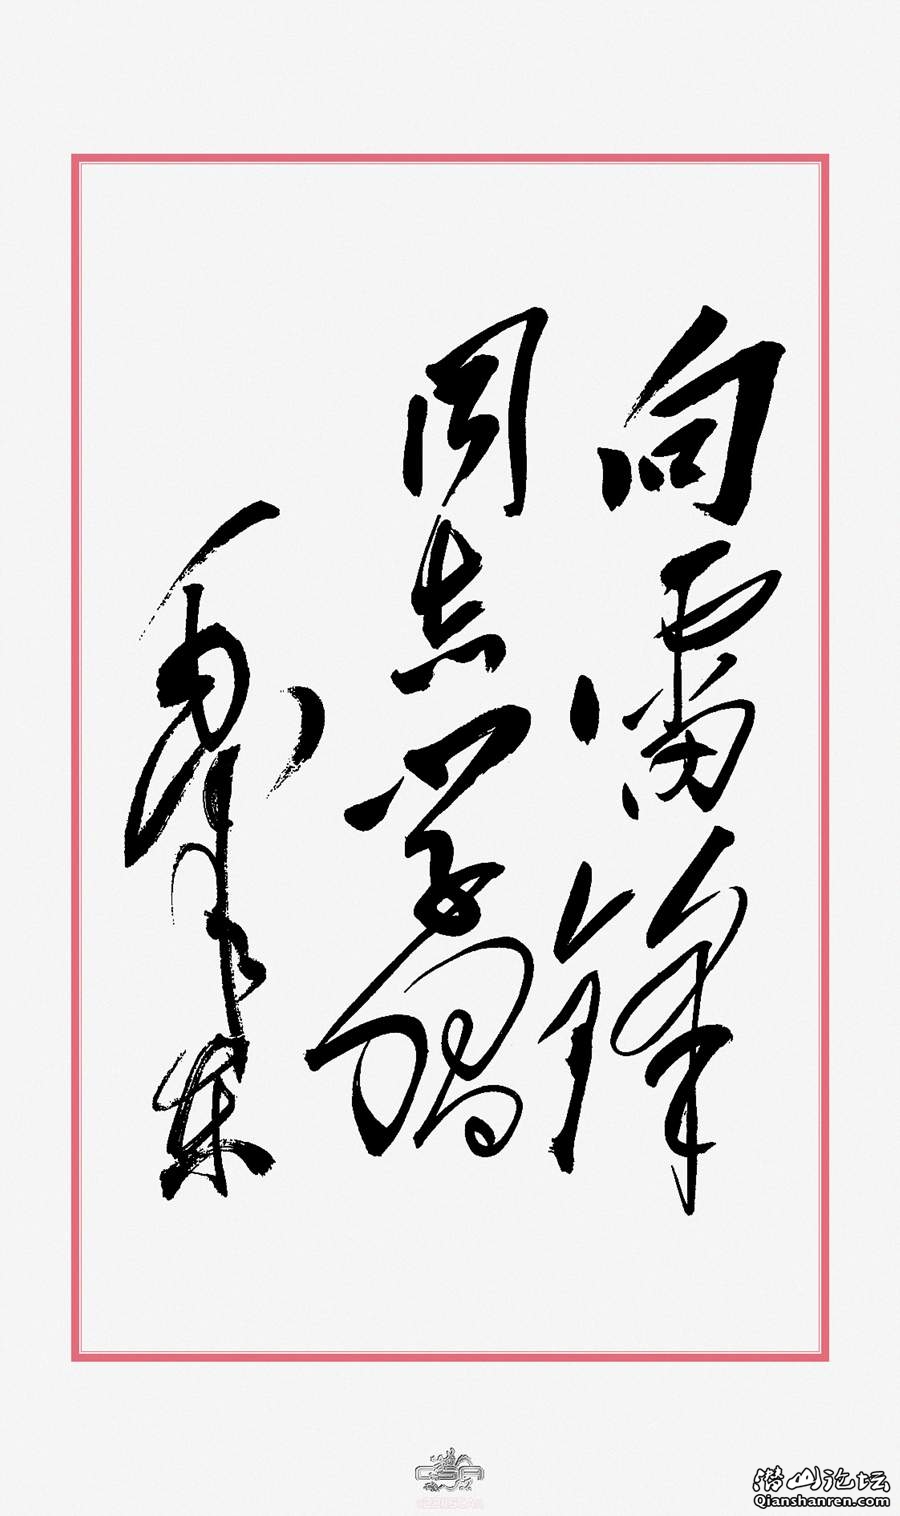 向雷锋
同志学习
毛泽东
潜山论坛
Qianshanren.com